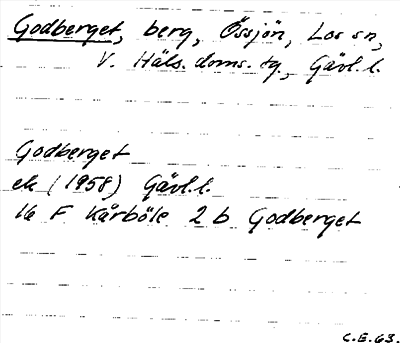 Godberget, berg, Össjön, Los sn,
V. Häls. doms. tg., Gävl. l.
Godberget
ek (1958) Gävl. l.
16 F Kårböle 2 b Godberget
C.E.63.